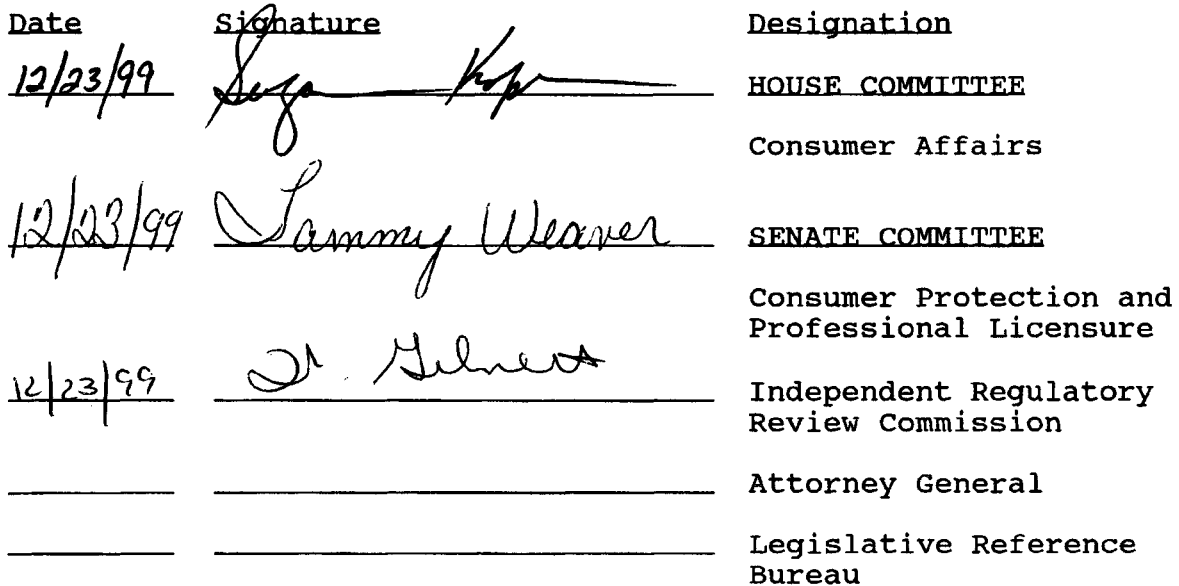 Date Signature Designation
12/23/99 HOUSE COMMITTEE
Consumer Affairs
12/23/99 Tammy Weaver SENATE COMMITTEE
Consumer Protection and
Professional Licensure
12/23/99 Independent Regulatory
Review Commission
Attorney General
Legislative Reference
Bureau